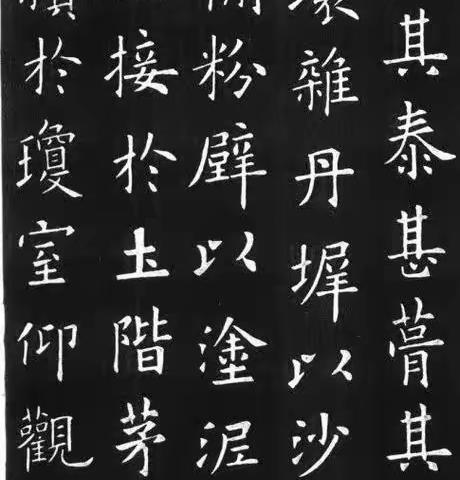 其泰甚葺其
雜丹墀以沙
粉壁以塗泥
接於土階茅
於瓊室仰觀